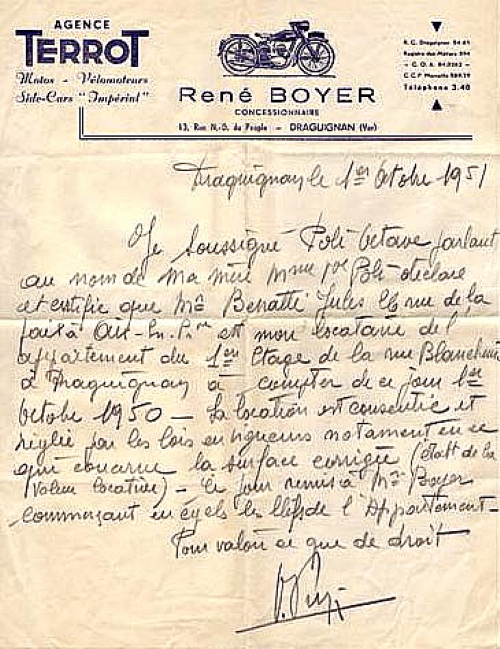 AGENCE
TERROT
Motos - Vélomoteurs
Side-Cars "Impérial"
René BOYER
CONCESSIONNAIRE
13, Rue N.-D. du Peuple - DRAGUIGNAN (Var)
R. C. Draguignan
Registre des Métiers
C. O. A.
C C P Marseille
Téléphone 3.40
Draguignan le 1er Octobre 1951
Je soussigné Poli Octave parlant
au nom de ma mère Mme Poli déclare
et certifie que Mr Jules 26 rue de la
à Aix-en-Pce est mon locataire de l'
appartement du 1er Etage de la rue Blancherie
à Draguignan à compter de ce jour 1er
Octobre 1950 - La location est consentie et
réglée par les lois en vigueurs notament en ce
qui concerne la surface corrigée (de la
Valeur locative) - Ce jour remis à Mr Boyer
commerçant en cycles les clefs de l'Appartement -
Pour valoir ce que de droit